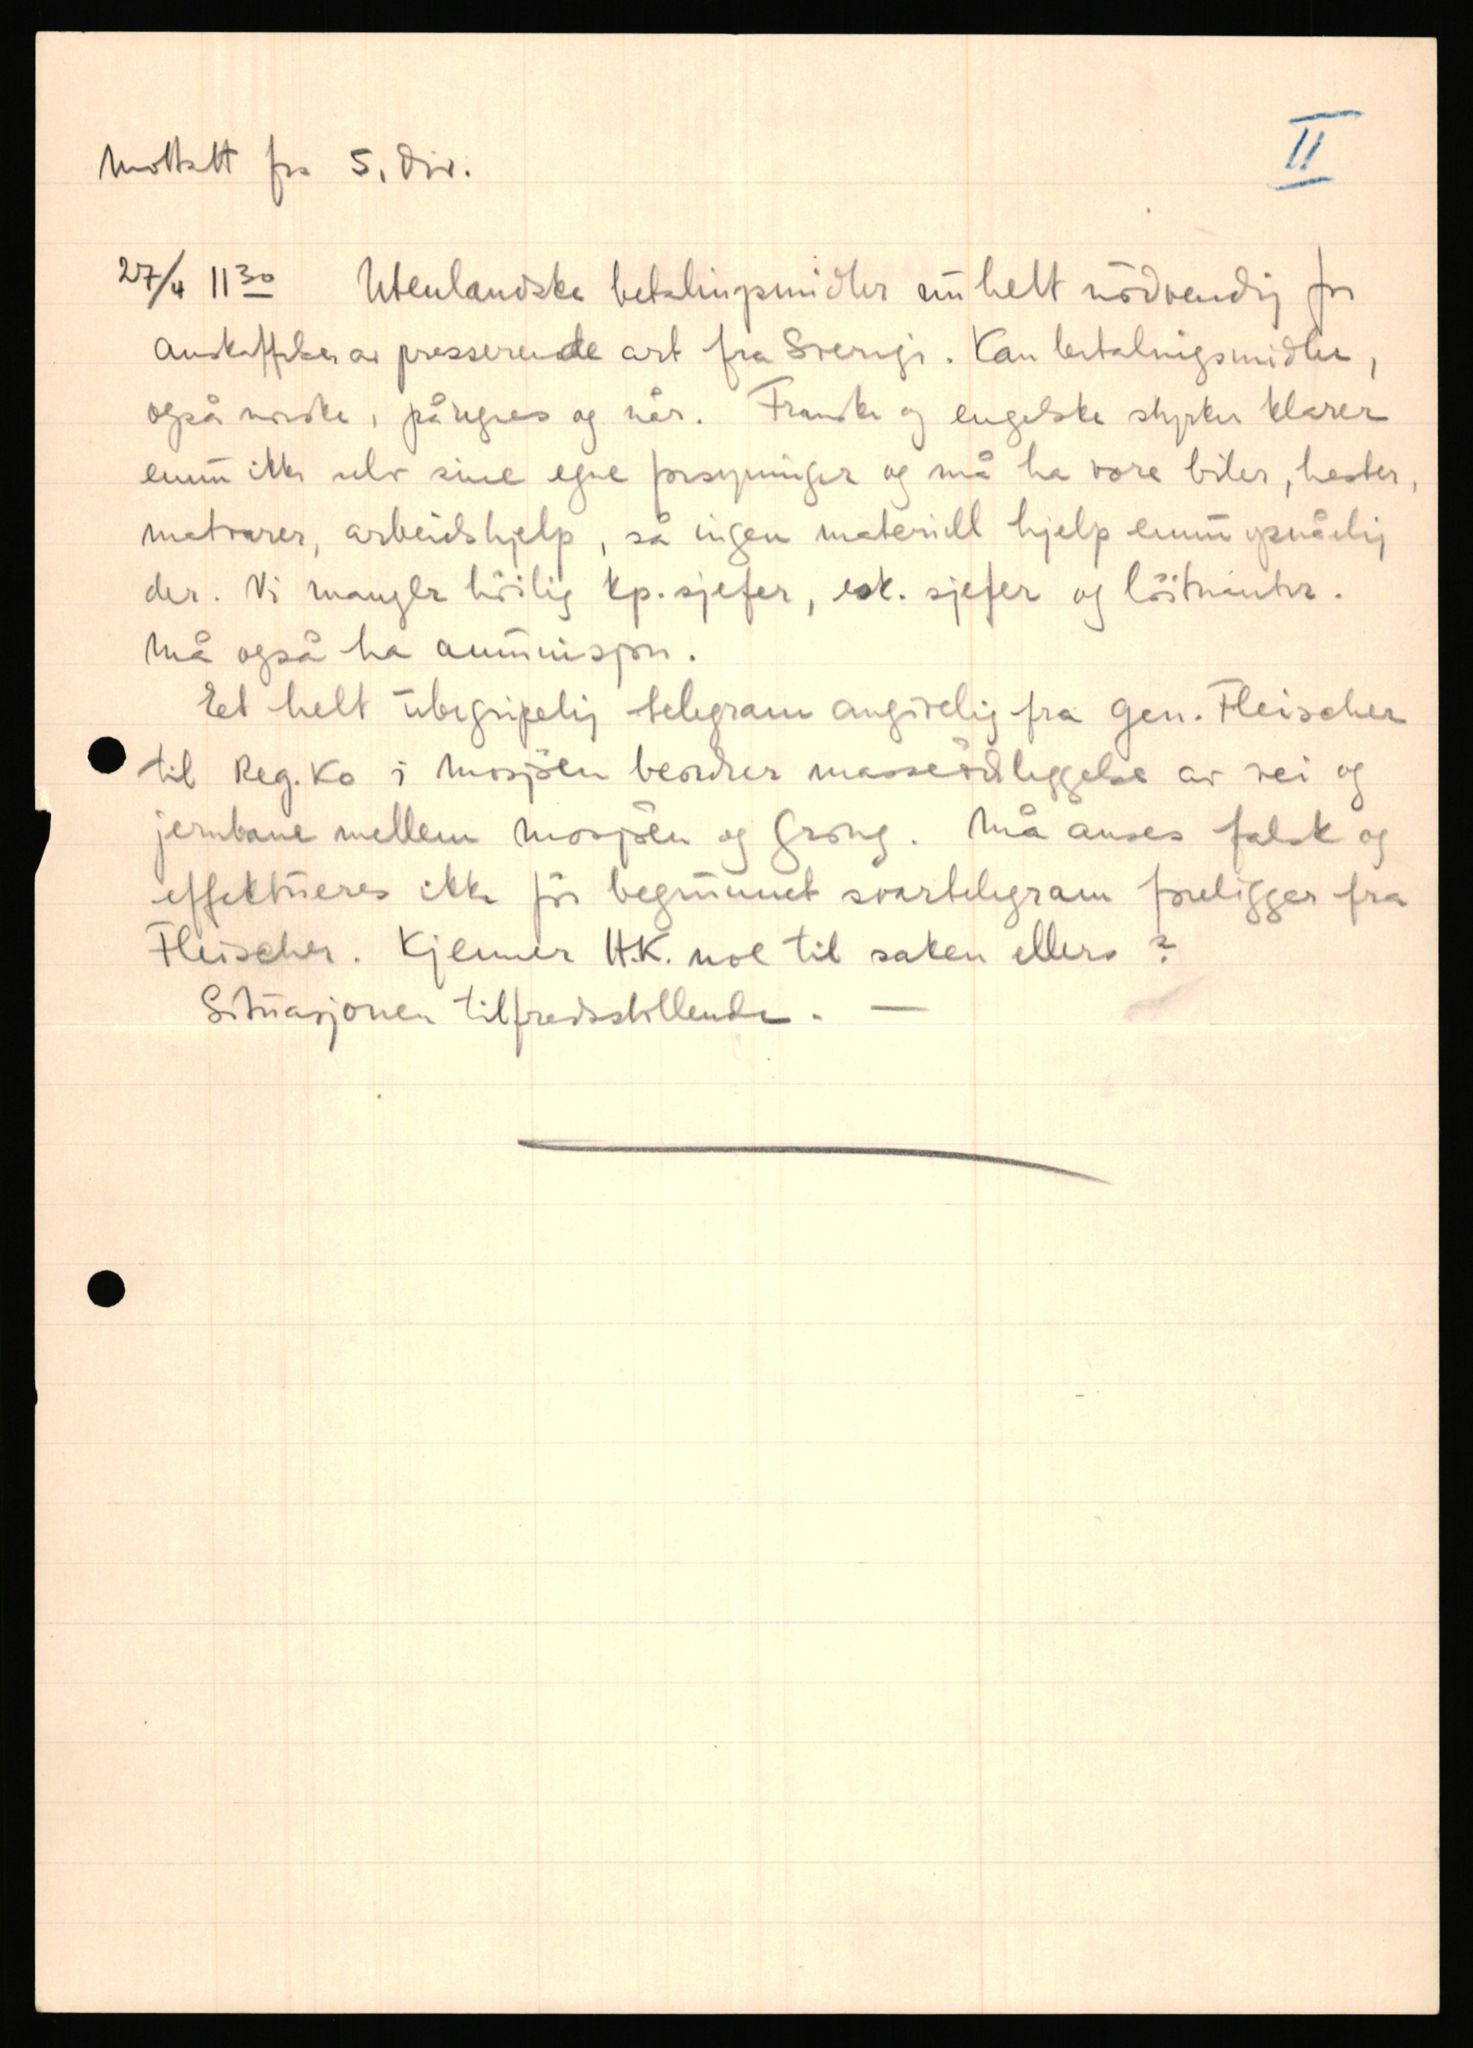 II
Mottatt fra 5. Div.
27/4 11 30 Utenlandske betalingsmidler nu helt nödvendig for
anskaffelser av presserende art fra Sverige. Kan betalingsmidler,
også norske, påregnes og når. Franske og engelske styrker klarer
ennu ikke selv sine egne forsyninger og må ha våre biler, hester,
matvarer, arbeidshjelp, så ingen materiell hjelp ennu opnåelig
der. Vi mangler höilig kp.sjefer, esk. sjefer og löitnanter.
Må også ha ammunisjon.
Et helt ubegripelig telegram angivelig fra Gen. Fleischer
til Reg.Ko i Mosjöen beordrer masseödeleggelse av vei og
jernbane mellem Mosjöen og Grong. Må anses falsk og
effektueres ikke för begrunnet svartelegram foreligger fra
Fleischer. Kjenner H.K. noe til saken ellers?
Situasjonen tilfredsstillende. —